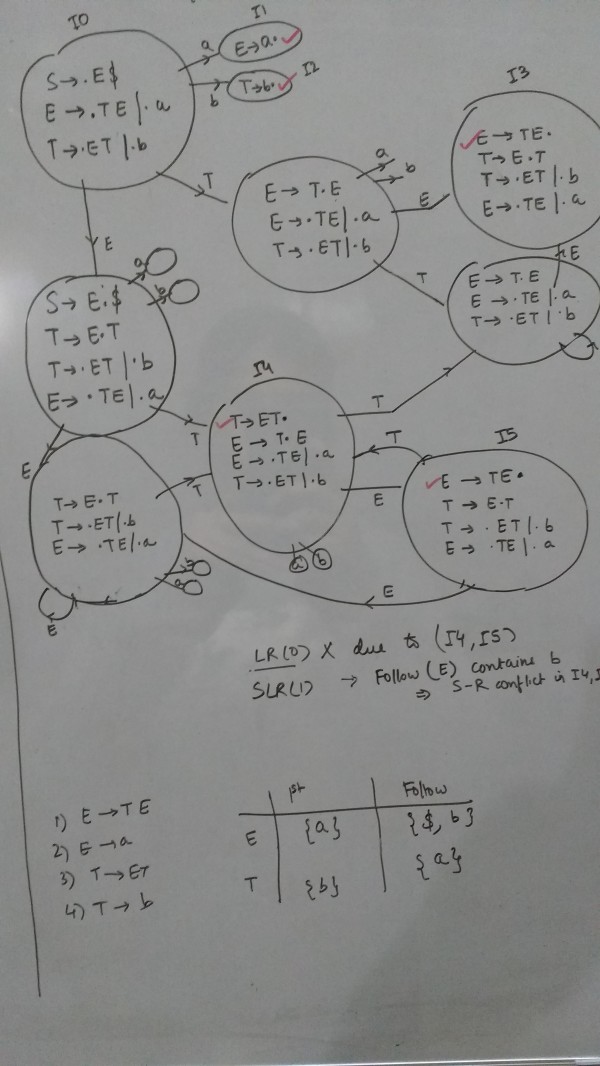 I0
S → .E$
E → .TE | .a
T → .ET | .b
a
b
I1
E → a.
I2
T → b.
T
E
E → T.E
E → .TE | .a
T → .ET | .b
a
b
E
T
I3
E → TE.
T → E.T
T → .ET | .b
E → .TE | .a
E
E → T.E
E → .TE | .a
T → .ET | .b
S → E.$
T → E.T
T → .ET | .b
E → .TE | .a
a
b
T
E
I4
T → ET.
E → T.E
E → .TE | .a
T → .ET | .b
a
b
T
T
E
I5
E → TE.
T → E.T
T → .ET | .b
E → .TE | .a
T → E.T
T → .ET | .b
E → .TE | .a
T
b
a
E
E
LR(0) X due to (I4, I5)
SLR(1) → Follow (E) contains b
⇒ S-R conflict in I4, I
1) E → TE
2) E → a
3) T → ET
4) T → b
1st Follow
E {a} {$, b}
T {b} {a}